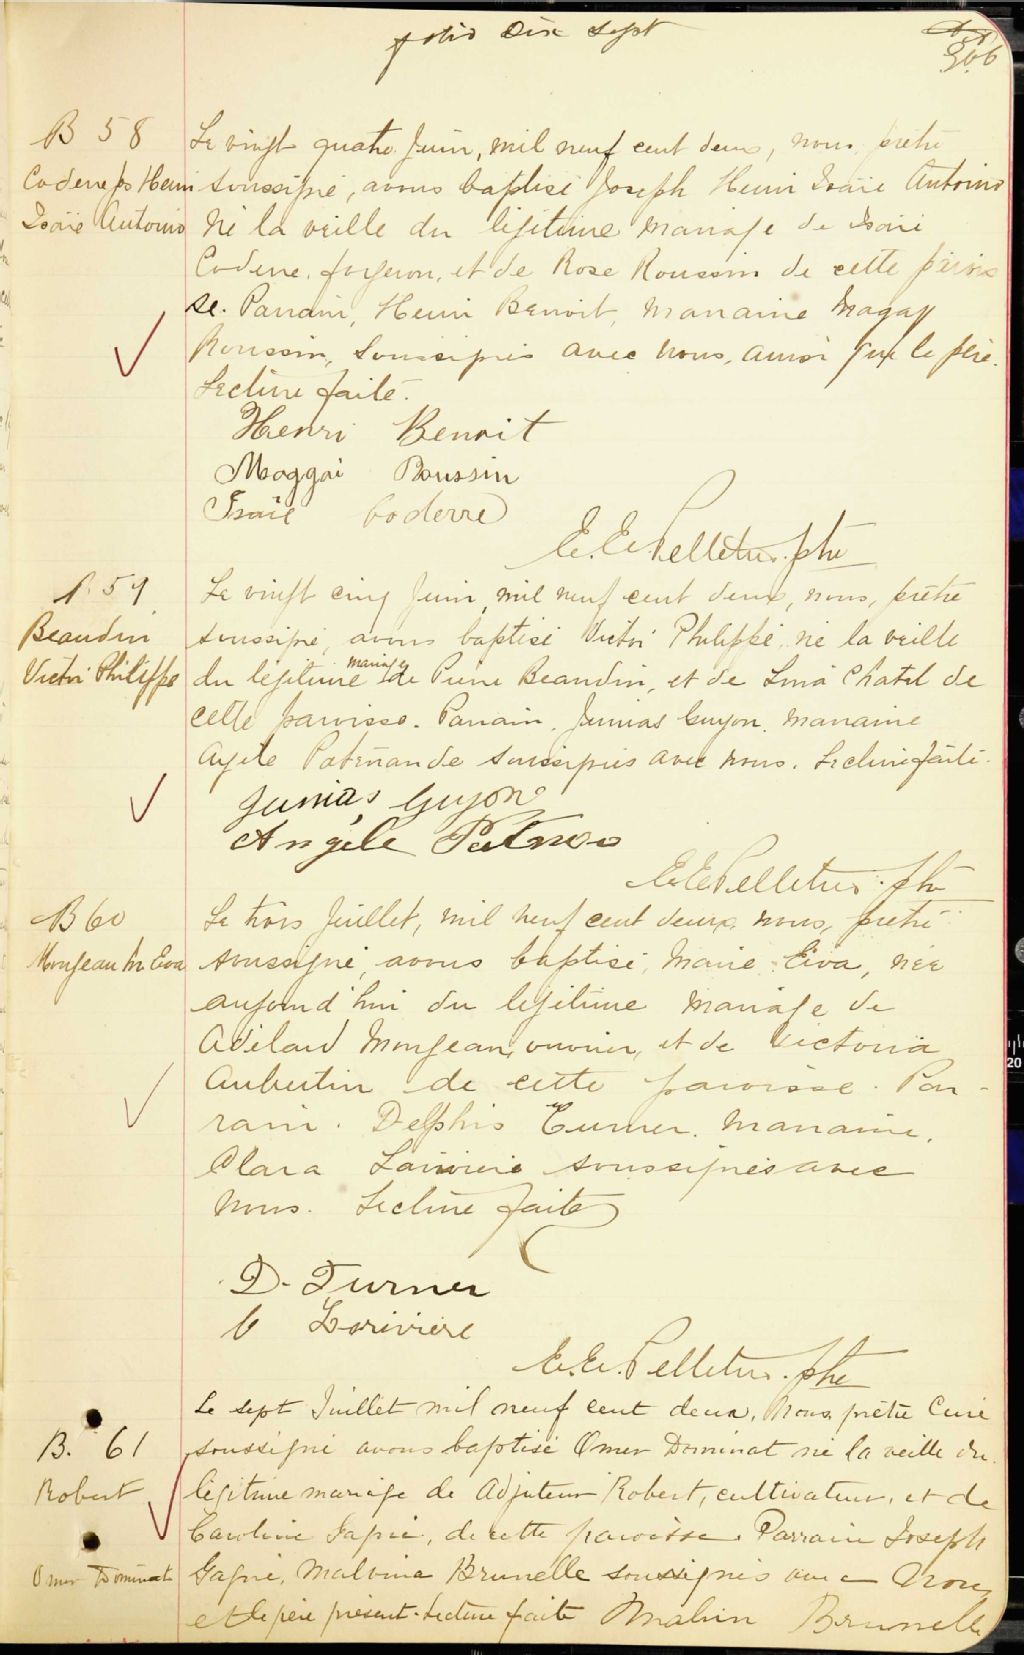 folio Dix Sept
306
B 58
Coderre Js Henri
Isaïe Antonio
Le vingt quatre Juin, mil neuf cent deux, nous, prêtre
soussigné, avons baptisé Joseph Henri Isaïe Antonio
né la veille du légitime mariage de Isaïe
Coderre, forgeron, et de Rose Roussin de cette parois
se. Parrain, Henri Benoit, marraine Maggy
Roussin, soussignés avec nous, ainsi que le père.
Lecture faite.
Henri Benoit
Maggai Roussin
Isaïe Coderre
E. E. Pelletier. ptre
B. 59
Beaudin
Victor Philippe
Le vingt cinq Juin, mil neuf cent deux, nous, prêtre
soussigné, avons baptisé Victor Philippe, né la veille
du légitime mariage de Pierre Beaudin, et de Lina Chatel de
cette paroisse. Parrain, Junias Guyon, marraine
Patenaude soussignés avec nous. Lecture faite.
Junias Guyon
Angèle
E. E. Pelletier. ptre
B 60
Monjeau M. Eva
Le trois Juillet, mil neuf cent deux, nous, prêtre
soussigné, avons baptisé, Marie Eva, née
aujourd'hui du légitime mariage de
Adélard Monjean, ouvrier, et de Victoria
Aubertin de cette paroisse. Par-
rain. Delphis Turner. marraine,
Clara Lariviere soussignés avec
nous. Lecture faite
D. Turner
C Lariviere
E. E. Pelletier. ptre
B. 61
Robert
Omer Dominat
Le sept Juillet mil neuf cent deux, nous prêtre Curé
soussigné avons baptisé Omer Dominat né la veille du
légitime mariage de Adjuteur Robert, cultivateur, et de
Caroline Gagné, de cette paroisse. Parrain Joseph
Gagné, Malvina Brunelle soussignés avec nous
et le père présent. Lecture faite Malvin Brunelle